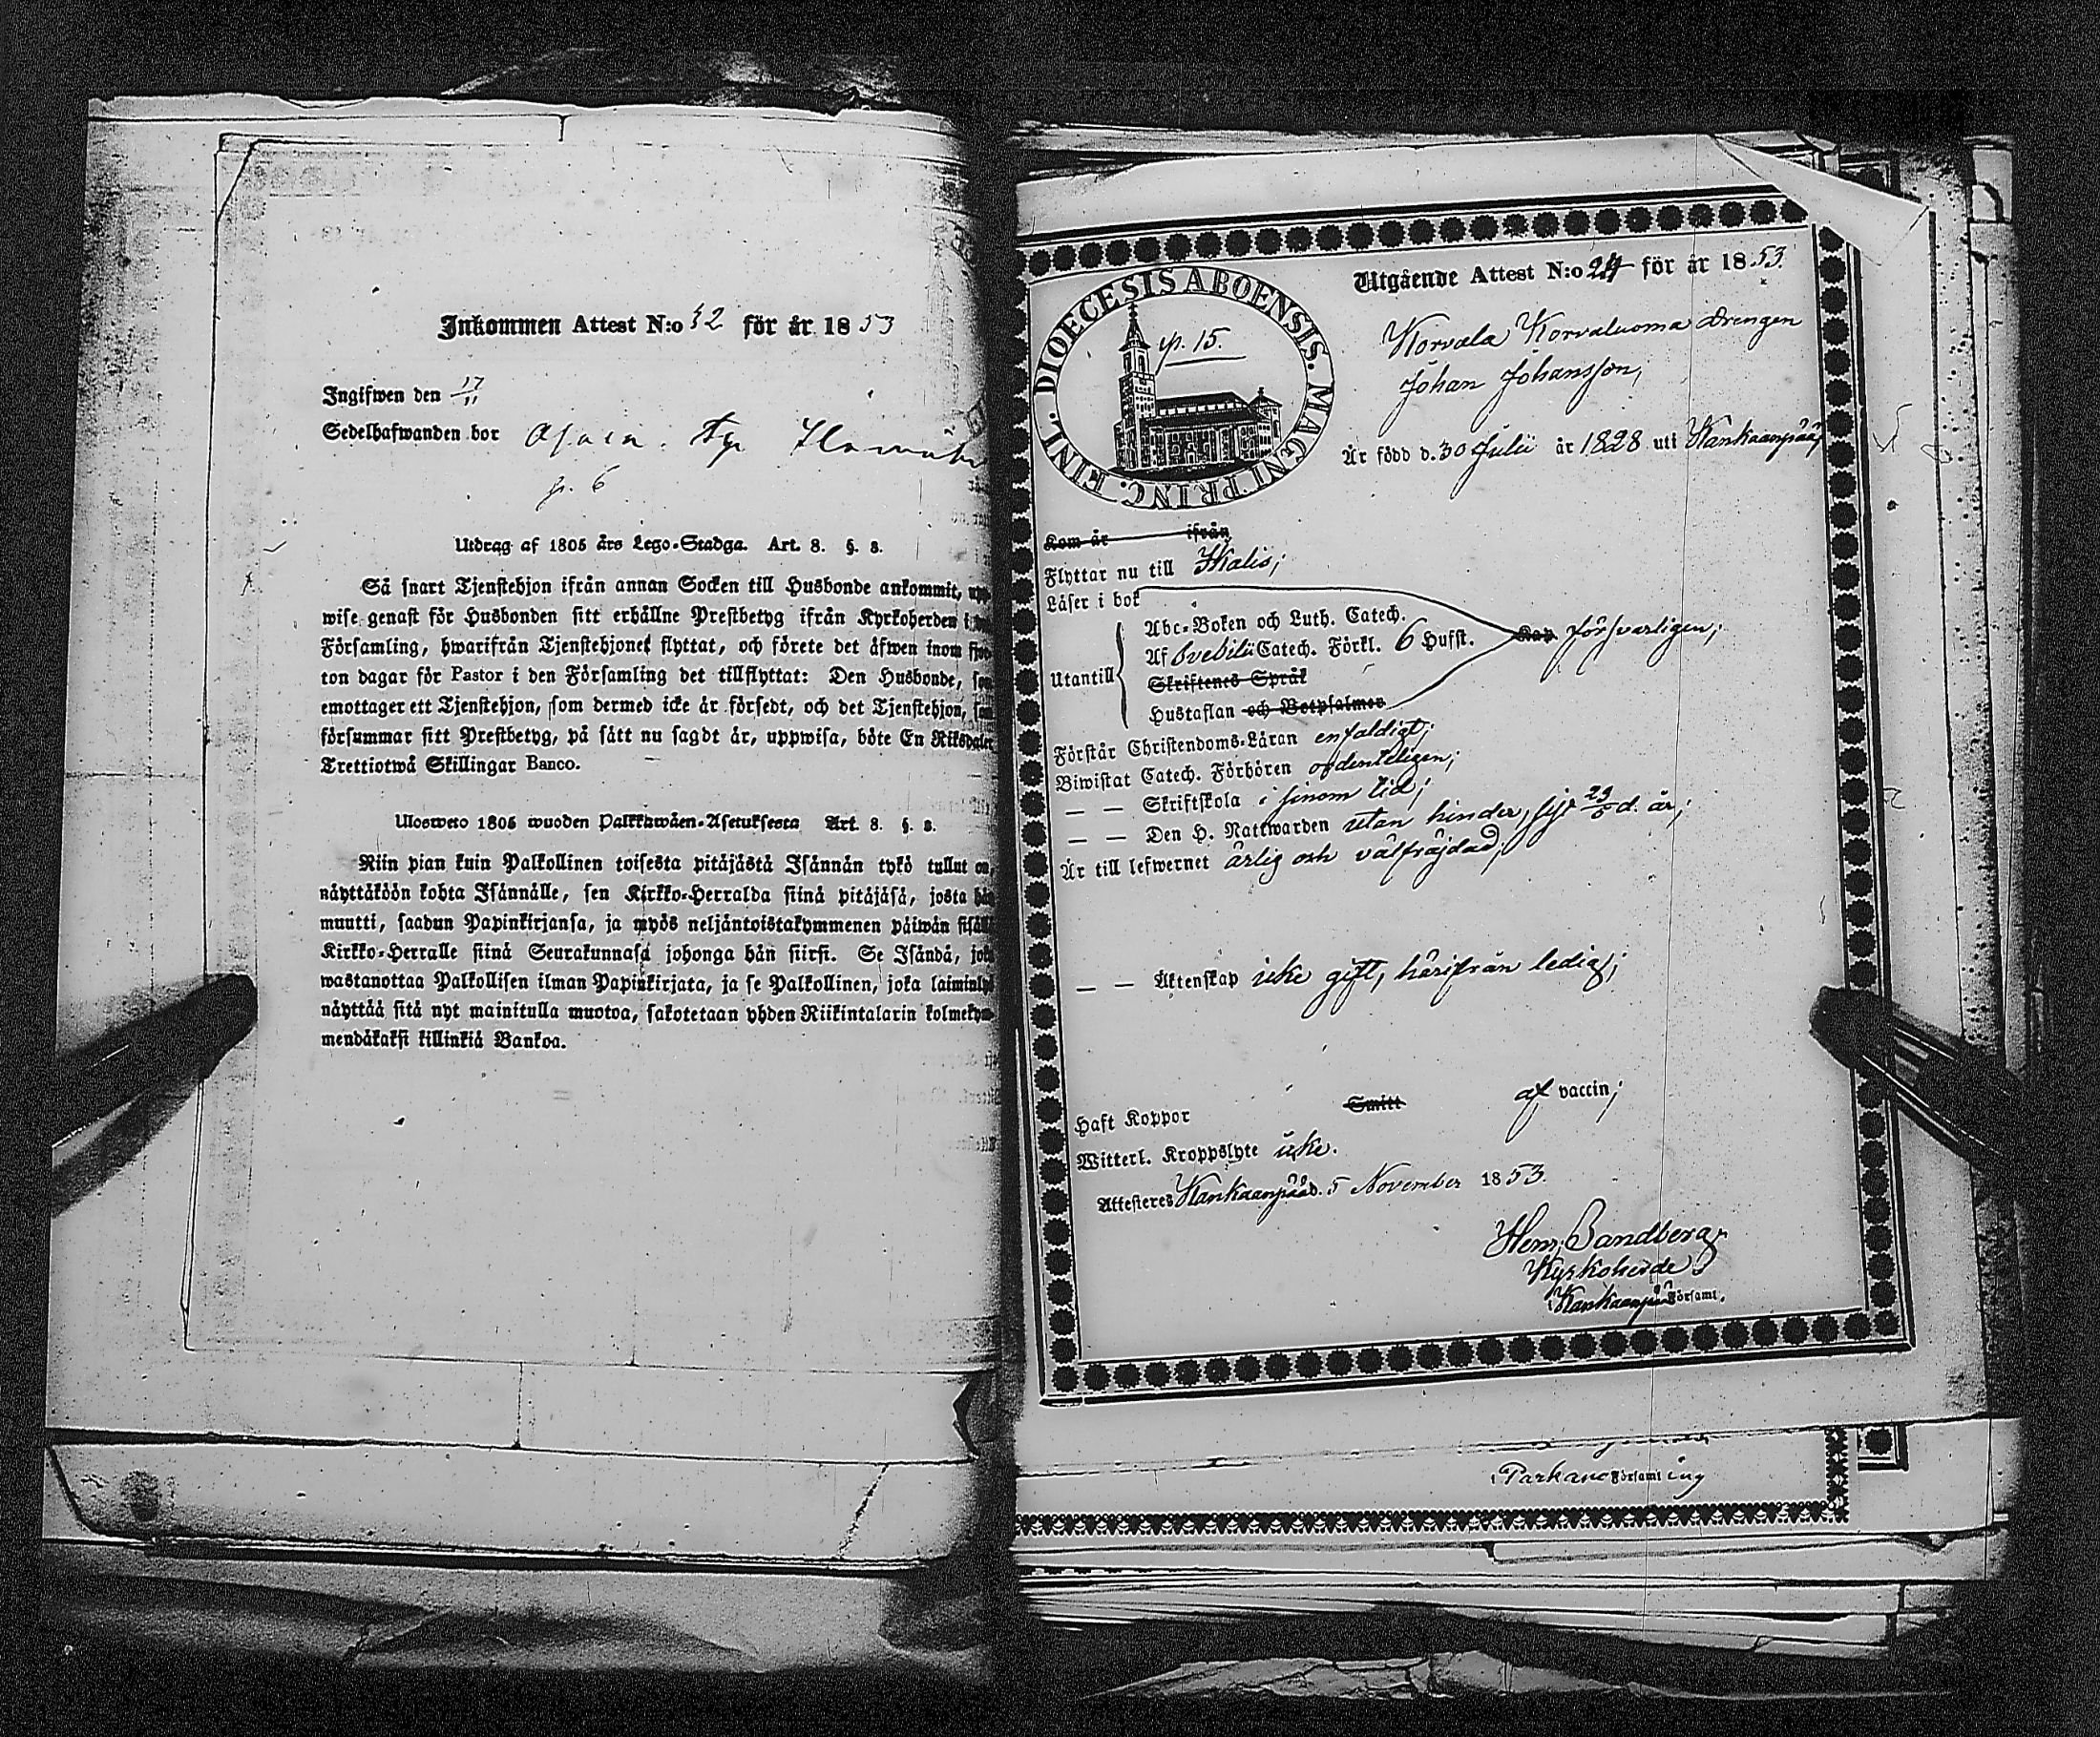 Inkommen Attest N:o 32 för år 1853
Ingifwen den 17/11
Sedelhafwanden bor
p. 6
Utdrag af 1805 års Lego-Stadga. Art. 8. §. 8.
Så snart Tjenstehjon ifrån annan Socken till Husbonde ankommit, upp-
wise genast för Husbonden sitt erhållne Prestbetyg ifrån Kyrkoherden i
Församling, hwarifrån Tjenstehjonet flyttat, och förete det äfwen inom fjor-
ton dagar för Pastor i den Församling det tillflyttat: Den Husbonde, som
emottager ett Tjenstehjon, som dermed icke är försedt, och det Tjenstehjon, som
försummar sitt Prestbetyg, på sätt nu sagdt är, uppwisa, böte En Riksdaler
Trettiotwå Skillingar Banco.
Uloswето 1805 wuoden Palkkawäen-Asetuksesta Art. 8. §. 8.
Niin pian kuin Palkollinen toisesta pitäjästä Isännän tykö tullut on,
näyttäköön kohta Isännälle, sen Kirkko-Herralda siinä pitäjäsä, josta hän
muutti, saadun Papinkirjansa, ja myös neljäntoistakymmenen päiwän sisällä
Kirkko-Herralle siinä Seurakunnasa johonga hän siirsi. Se Isändä, joka
wastanottaa Palkollisen ilman Papinkirjata, ja se Palkollinen, joka laiminlyö
näyttää sitä nyt mainitulla muotoa, sakotetaan yhden Riikintalarin kolmekym-
mendäkaksi killinkiä Bankoa.
DIOECESIS ABOENSIS. MAGNI PRINC. FINL.
p. 15.
Utgående Attest N:o 24 för år 1853.
Korvala Korvaluoma Drengen
Johan Johansson,
Är född d. 30 Julii år 1828 uti Kankaanpää,
Kom år ifrån
Flyttar nu till Ikalis;
Läser i bok
Abc-Boken och Luth. Catech.
Af Svebilii Catech. Förkl. 6 Hufst. försvarligen;
Utantill
Skriftenes Språk
Hustaflan och Botpsalmer
Förstår Christendoms-Läran enfaldigt;
Biwistat Catech. Förhören ordenteligen;
— — Skriftskola i sinom tid;
— — Den H. Nattwarden utan hinder, d. år;
Är till lefwernet ärlig och välfräjdad;
— — Äktenskap icke gift, härifrån ledig;
Haft Koppor Smitt af vaccin;
Witterl. Kroppslyte icke.
Attesteres Kankaanpää d. 5 November 1853.
Henr. Sandberg
Kyrkoherde
i Kankaanpää Församl.
i Parkano Församling